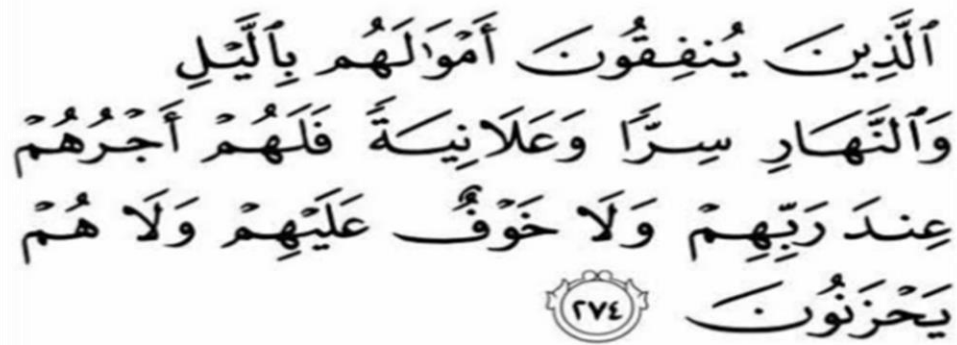 ٱلَّذِينَ يُنفِقُونَ أَمۡوَٰلَهُم بِٱلَّيۡلِ
وَٱلنَّهَارِ سِرّٗا وَعَلَانِيَةٗ فَلَهُمۡ أَجۡرُهُمۡ
عِندَ رَبِّهِمۡ وَلَا خَوۡفٌ عَلَيۡهِمۡ وَلَا هُمۡ
يَحۡزَنُونَ ٢٧٤